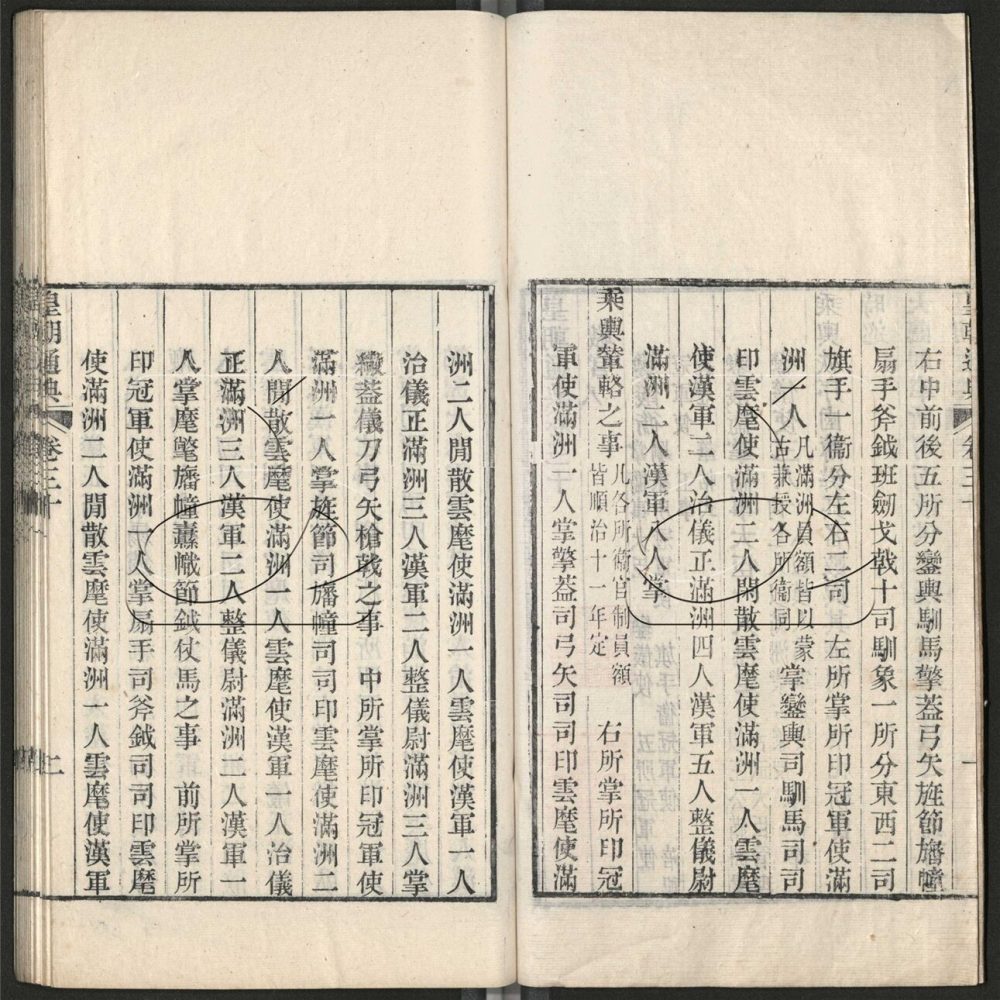 右中前後五所分鑾輿馴馬擎葢弓矢旌節旛幢
扇手斧鉞班劒戈戟十司馴象一所分東西二司
旗手一衞分左右二司 左所掌所印冠軍使滿
洲一人
凡滿洲員額皆以蒙
古兼授各所衞同
掌鑾輿司馴馬司司
印雲麾使滿洲二人閒散雲麾使滿洲一人雲麾
使漢軍二人治儀正滿洲四人漢軍五人整儀尉
滿洲二人漢軍八人掌
乘輿輦輅之事
凡各所衞官制員額
皆順治十一年定
右所掌所印冠
軍使滿洲一人掌擎葢司弓矢司司印雲麾使滿
皇朝通典 卷三十 二
洲二人閒散雲麾使滿洲一人雲麾使漢軍一人
治儀正滿洲三人漢軍二人整儀尉滿洲三人掌
繖葢儀刀弓矢槍戟之事 中所掌所印冠軍使
滿洲一人掌旌節司旛幢司司印雲麾使滿洲二
人閒散雲麾使滿洲一人雲麾使漢軍一人治儀
正滿洲三人漢軍二人整儀尉滿洲二人漢軍一
人掌麾氅旛幢纛幟節鉞仗馬之事 前所掌所
印冠軍使滿洲一人掌扇手司斧鉞司司印雲麾
使滿洲二人閒散雲麾使滿洲一人雲麾使漢軍